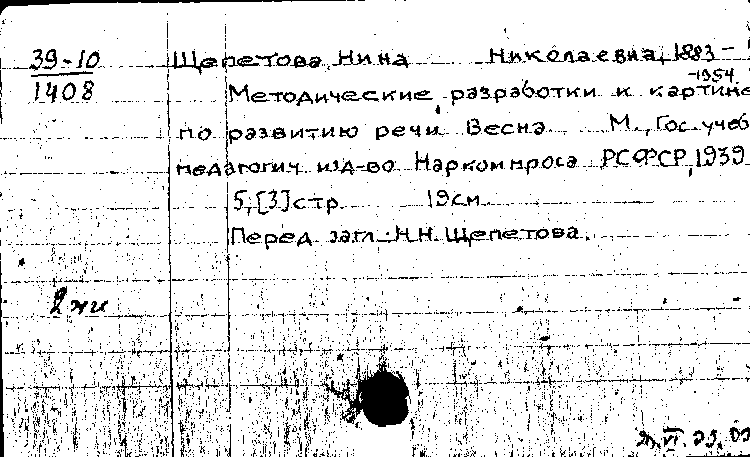 39-10
1408
Щепетова, Нина Николаевна, 1883-
-1954.
Методические разработки к картине
по развитию речи. Весна М., Гос. учеб
педагогич. изд-во Наркомпроса РСФСР, 1939
5, [3] стр. 19 см
Перед загл.: Н.Н. Щепетова.